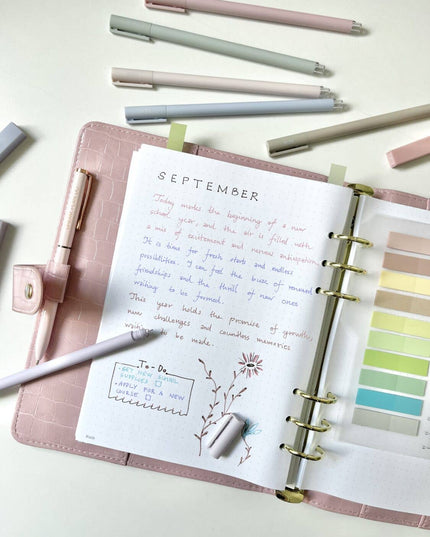 SEPTEMBER
Today marks the beginning of a new
school year, and the air is filled with
a mix of excitement and nervous anticipation.
It is time for fresh starts and endless
possibilities. I can feel the buzz of renewed
friendships and the thrill of new ones
waiting to be formed.
This year holds the promise of growth,
new challenges and countless memories
waiting to be made.
To-Do
• GET NEW
SUPPLIES
• APPLY FOR A NEW
COURSE